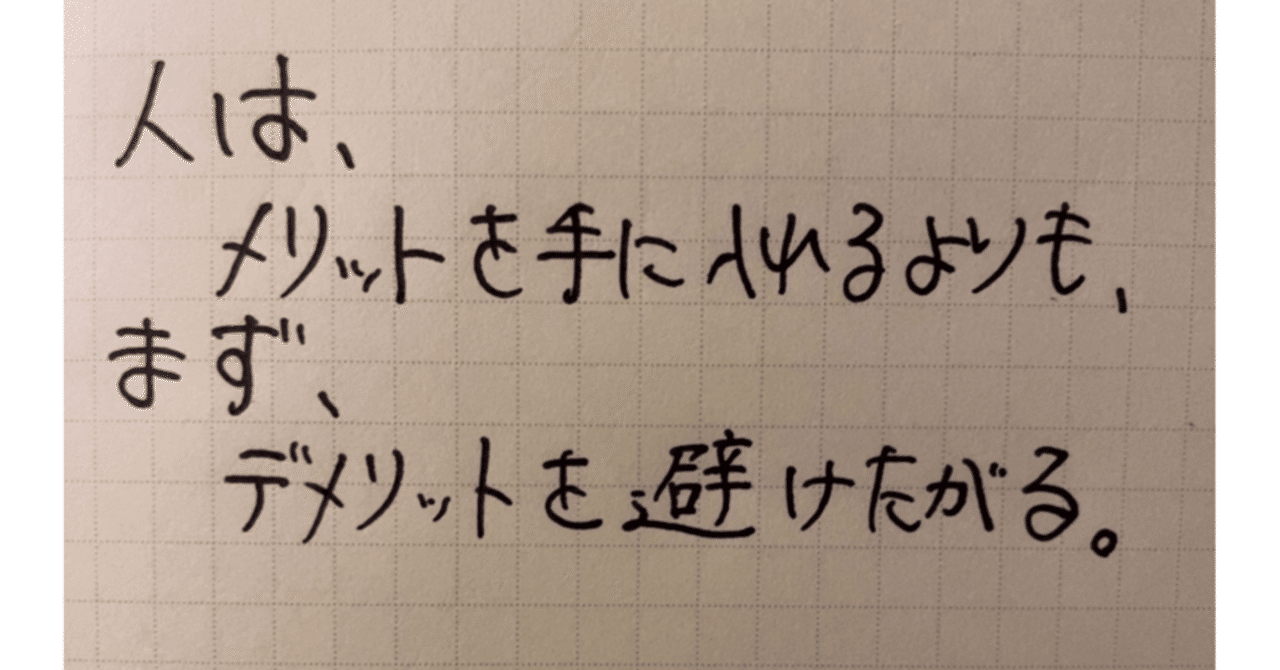 人は、
メリットを手に入れるよりも、
まず、
デメリットを避けたがる。